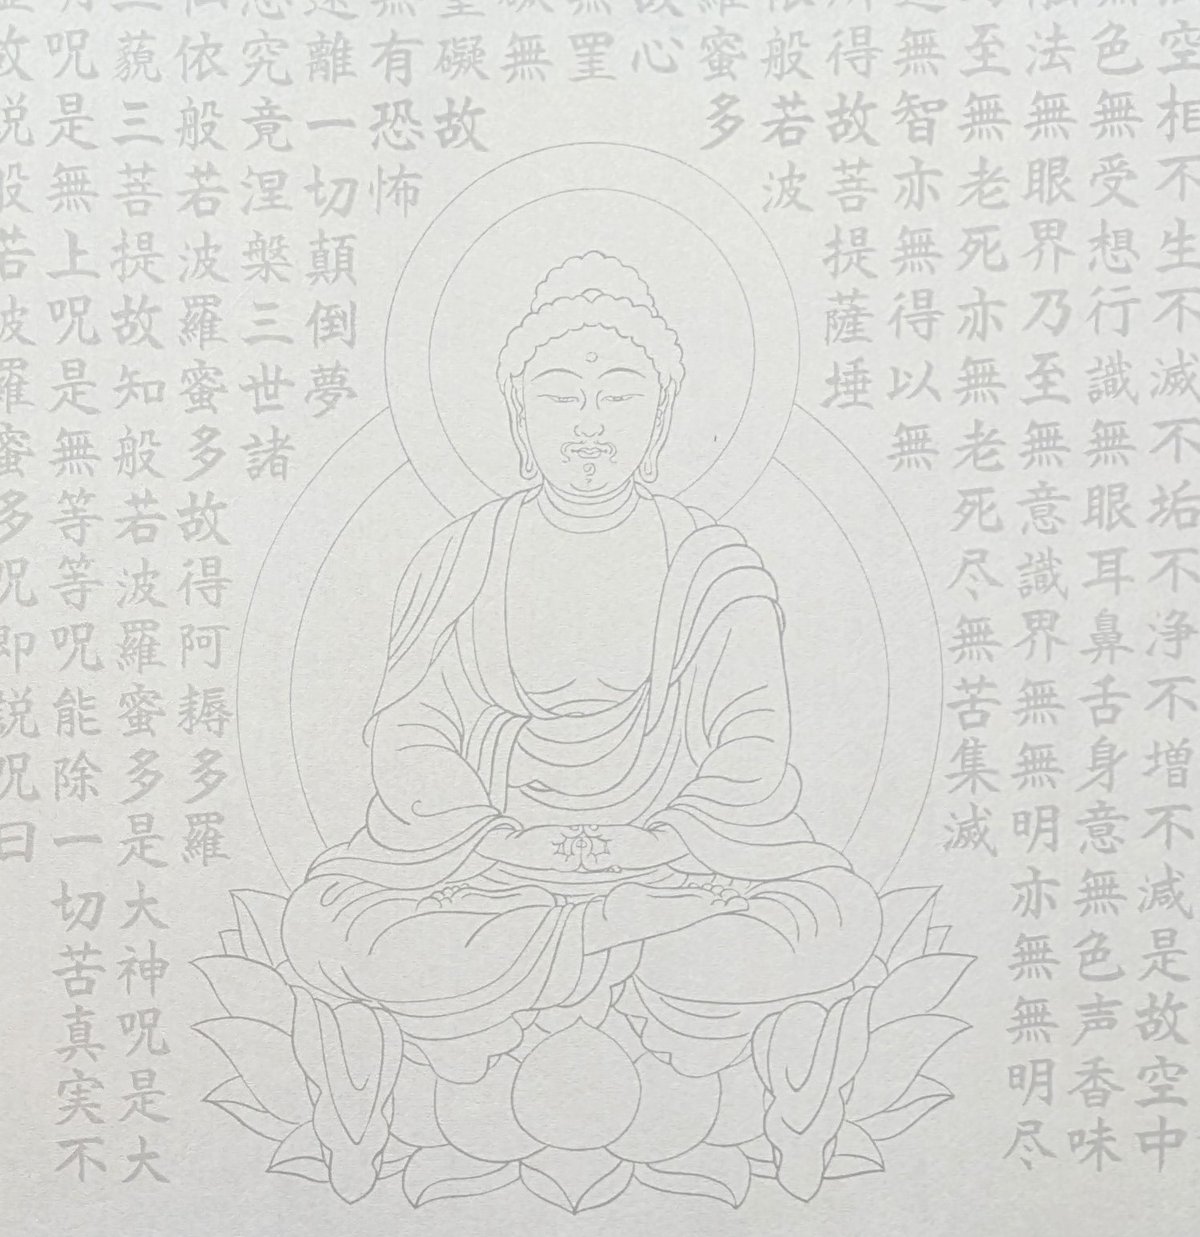 空相不生不滅不垢不浄不増不減是故空中
色無受想行識無眼耳鼻舌身意無色声香味
法無眼界乃至無意識界無無明亦無無明尽
至無老死亦無老死尽無苦集滅
無智亦無得以無
得故菩提薩埵
般若波
蜜多
心
罣
無
礙故
有恐怖
離一切顛倒夢
究竟涅槃三世諸
依般若波羅蜜多故得阿耨多羅
藐三菩提故知般若波羅蜜多是大神呪是大
呪是無上呪是無等等呪能除一切苦真実不
故説般若波羅蜜多呪即説呪曰